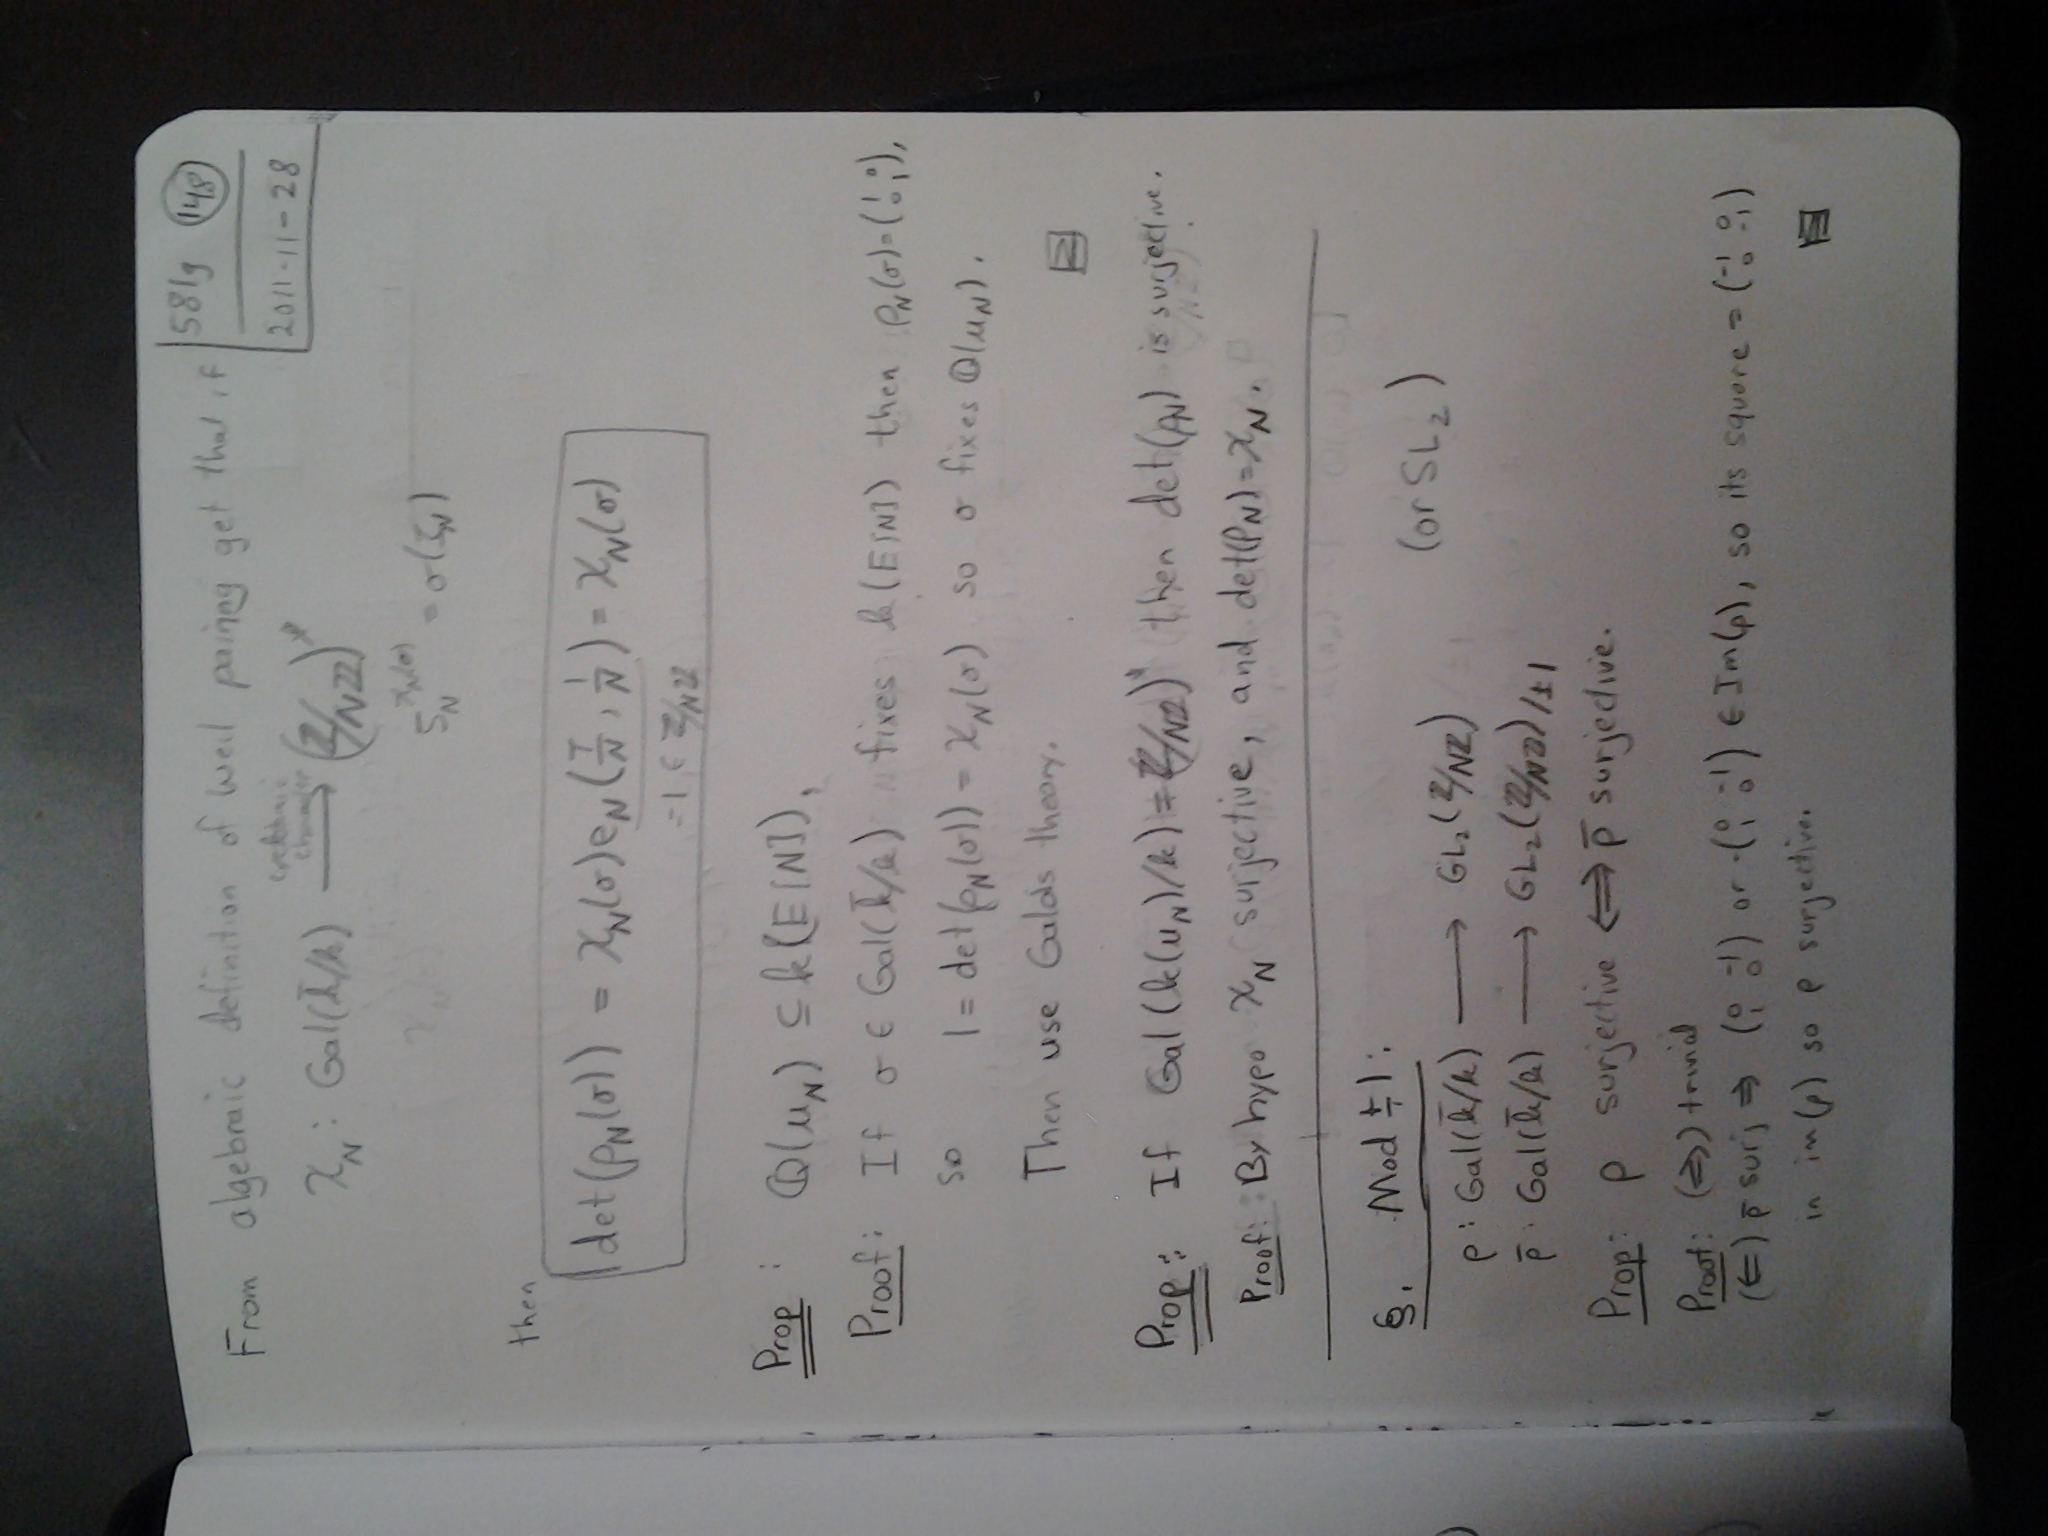 581g 148
2011-11-28
From algebraic definition of weil pairing get that if
cyclotomic character
χ_N : Gal(k̄/k) ⟶ (ℤ/Nℤ)*
ζ_N^{χ_N(σ)} = σ(ζ_N)
then
det(ρ_N(σ)) = χ_N(σ) e_N(τ/N, 1/N) = χ_N(σ)
=1 ∈ ℤ/Nℤ
Prop: ℚ(μ_N) ⊆ k(E[N]),
Proof: If σ ∈ Gal(k̄/k) fixes k(E[N]) then ρ_N(σ) = (1 0 0 1),
so 1 = det(ρ_N(σ)) = χ_N(σ) so σ fixes ℚ(μ_N).
Then use Galois theory.
Prop: If Gal(k(μ_N)/k) = (ℤ/Nℤ)* then det(ρ_N) is surjective.
Proof: By hypo χ_N surjective, and det(ρ_N) = χ_N.
Mod ±1:
ρ : Gal(k̄/k) ⟶ GL₂(ℤ/Nℤ) (or SL₂)
ρ̄ : Gal(k̄/k) ⟶ GL₂(ℤ/Nℤ)/±1
Prop: ρ surjective ⟺ ρ̄ surjective.
Proof: (⇒) trivial
(⇐) ρ̄ surj ⇒ (0 -1 1 0) or -(0 -1 1 0) ∈ Im(ρ), so its square = (-1 0 0 -1)
in im(ρ) so ρ surjective.